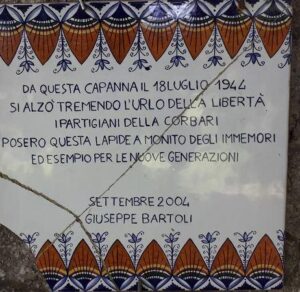 DA QUESTA CAPANNA IL 18 LUGLIO 1944
SI ALZO' TREMENDO L'URLO DELLA LIBERTÀ
I PARTIGIANI DELLA CORBARI
POSERO QUESTA LAPIDE A MONITO DEGLI IMMEMORI
ED ESEMPIO PER LE NUOVE GENERAZIONI
SETTEMBRE 2004
GIUSEPPE BARTOLI